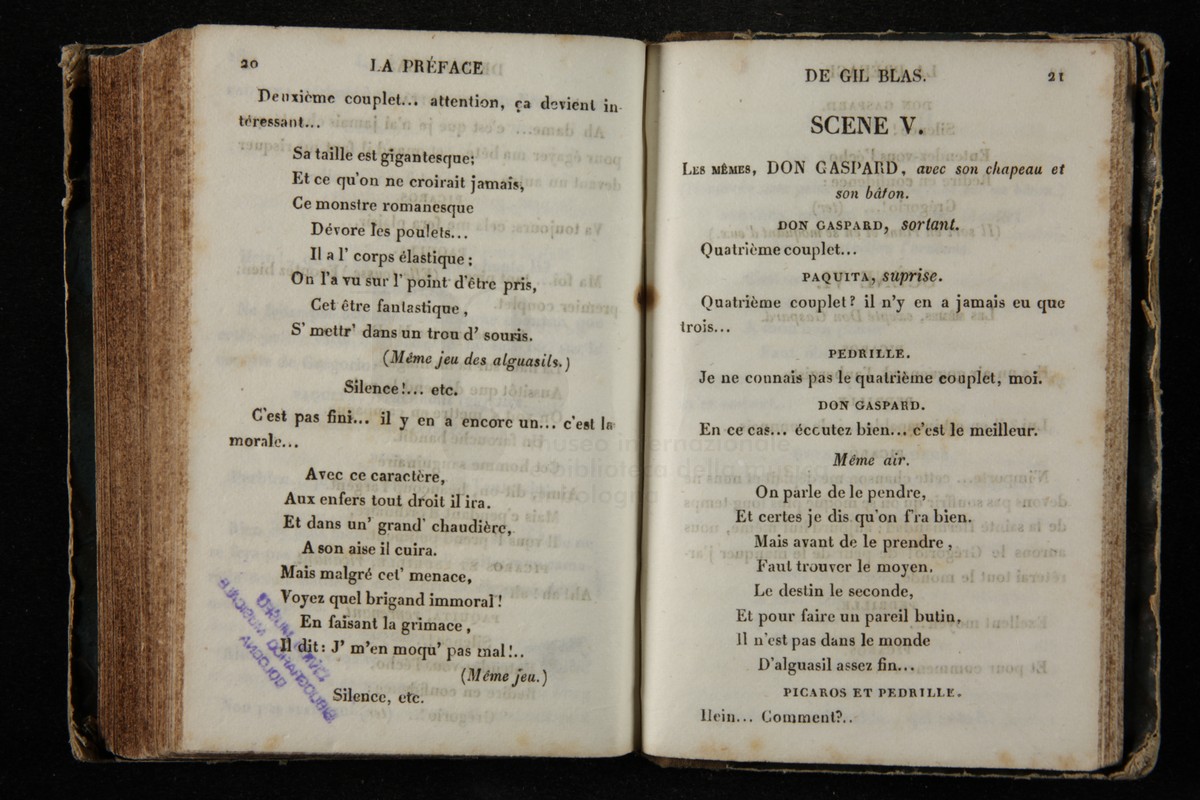 20
LA PRÉFACE
Deuxième couplet... attention, ça devient in-
téressant...
Sa taille est gigantesque;
Et ce qu'on ne croirait jamais,
Ce monstre romanesque
Dévore les poulets...
Il a l' corps élastique;
On l'a vu sur l' point d'être pris,
Cet être fantastique,
S' mettr' dans un trou d' souris.
(Même jeu des alguasils.)
Silence!... etc.
C'est pas fini... il y en a encore un... c'est la
morale...
Avec ce caractère,
Aux enfers tout droit il ira.
Et dans un' grand' chaudière,
A son aise il cuira.
Mais malgré cet' menace,
Voyez quel brigand immoral!
En faisant la grimace,
Il dit: J' m'en moqu' pas mal!..
(Même jeu.)
Silence, etc.
DE GIL BLAS.
21
SCENE V.
LES MÊMES, DON GASPARD, avec son chapeau et
son bâton.
DON GASPARD, sortant.
Quatrième couplet...
PAQUITA, suprise.
Quatrième couplet? il n'y en a jamais eu que
trois...
PEDRILLE.
Je ne connais pas le quatrième couplet, moi.
DON GASPARD.
En ce cas... écoutez bien... c'est le meilleur.
Même air.
On parle de le pendre,
Et certes je dis qu'on f'ra bien.
Mais avant de le prendre,
Faut trouver le moyen.
Le destin le seconde,
Et pour faire un pareil butin,
Il n'est pas dans le monde
D'alguasil assez fin...
PICAROS ET PEDRILLE.
Hein... Comment?..
museo internazionale
biblioteca della musica
bologna